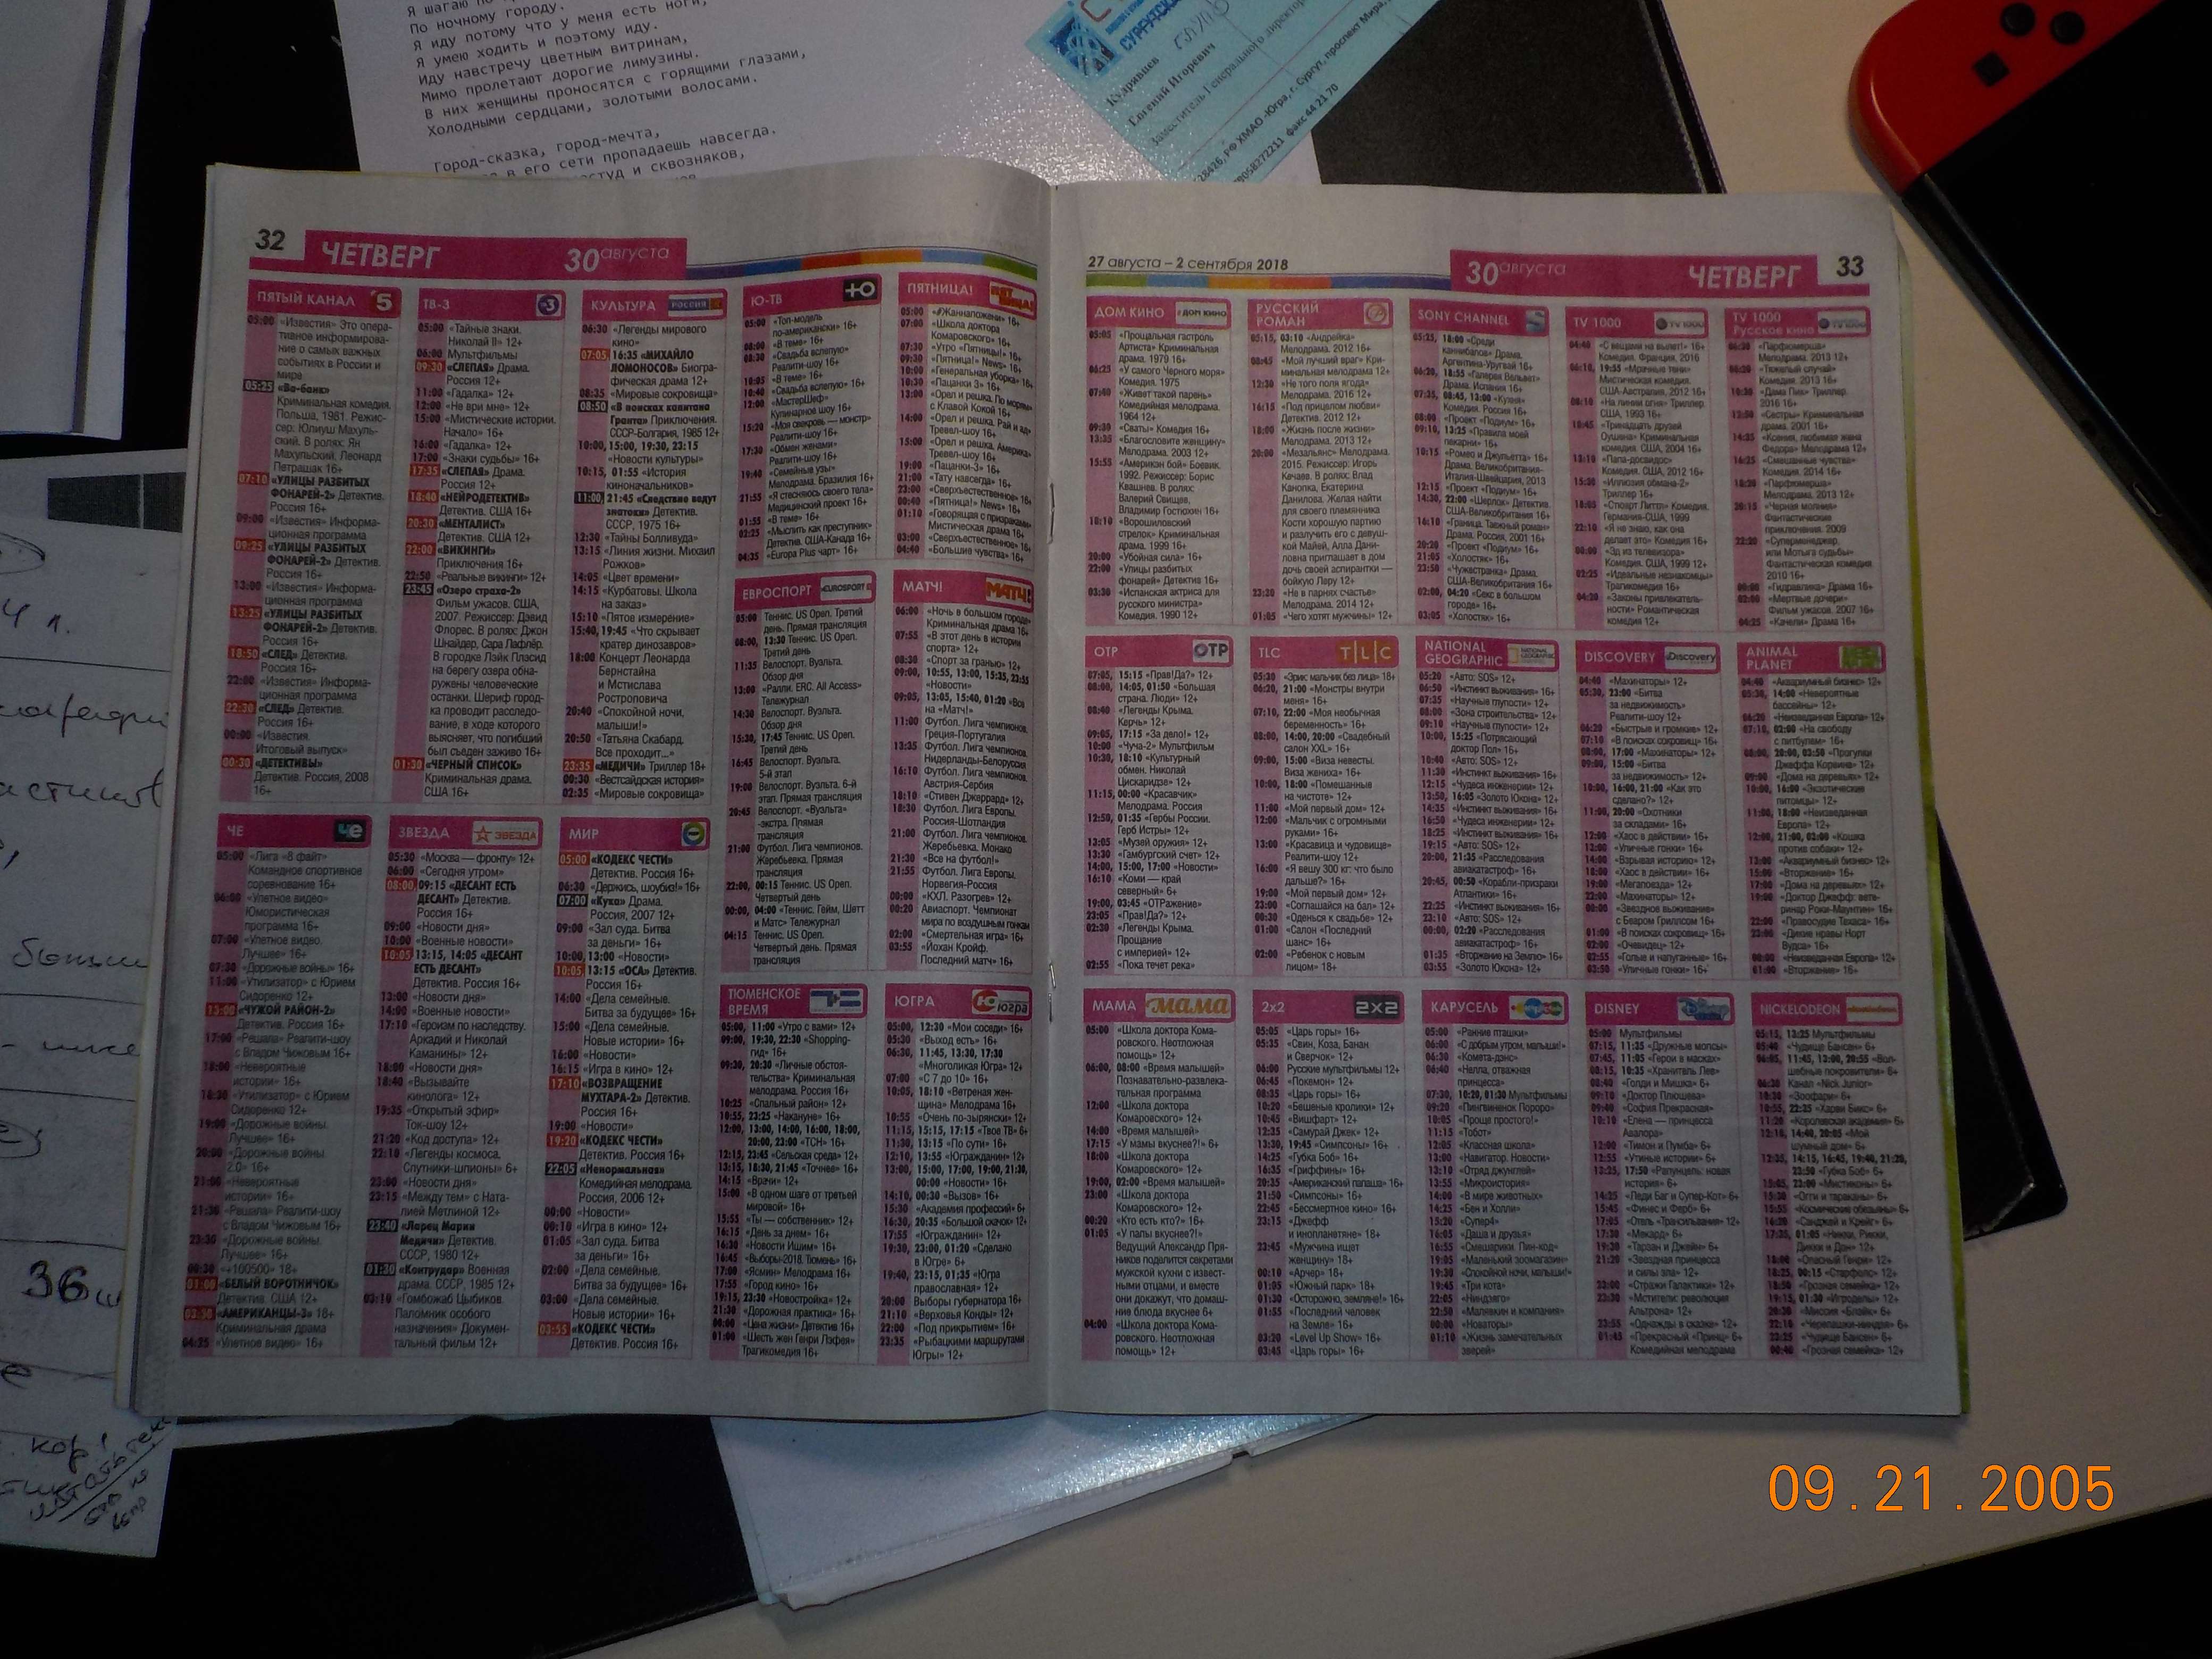 По ночному городу.
Я иду потому что у меня есть ноги,
Я умею ходить и поэтому иду.
Иду навстречу цветным витринам,
Мимо пролетают дорогие лимузины.
В них женщины проносятся с горящими глазами,
Холодными сердцами, золотыми волосами.
Город-сказка, город-мечта,
в его сети пропадаешь навсегда.
и сквозняков,
Кудрявцев
Евгений Игоревич
Заместитель Генерального директора
РФ ХМАО-Югра, г. Сургут, проспект Мира,
факс 44 21 70
32 ЧЕТВЕРГ 30 августа
ПЯТЫЙ КАНАЛ 5
05:00 «Известия» Это опера-
тивное информирова-
ние о самых важных
событиях в России и
мире
05:25 «Ва-банк»
Криминальная комедия.
Польша, 1981. Режис-
сер: Юлиуш Махуль-
ский. В ролях: Ян
Махульский, Леонард
Петрашак 16+
07:10 «УЛИЦЫ РАЗБИТЫХ
ФОНАРЕЙ-2» Детектив.
Россия 16+
09:00 «Известия» Информа-
ционная программа
09:25 «УЛИЦЫ РАЗБИТЫХ
ФОНАРЕЙ-2» Детектив.
Россия 16+
13:00 «Известия» Информа-
ционная программа
13:25 «УЛИЦЫ РАЗБИТЫХ
ФОНАРЕЙ-2» Детектив.
Россия 16+
18:50 «СЛЕД» Детектив.
Россия 16+
22:00 «Известия» Информа-
ционная программа
22:30 «СЛЕД» Детектив.
Россия 16+
00:00 «Известия.
Итоговый выпуск»
00:30 «ДЕТЕКТИВЫ»
Детектив. Россия, 2008
16+
ТВ-3
05:00 «Тайные знаки.
Николай II» 12+
06:00 Мультфильмы
09:30 «СЛЕПАЯ» Драма.
Россия 12+
11:00 «Гадалка» 12+
12:00 «Не ври мне» 12+
15:00 «Мистические истории.
Начало» 16+
16:00 «Гадалка» 12+
17:00 «Знаки судьбы» 16+
17:35 «СЛЕПАЯ» Драма.
Россия 12+
18:40 «НЕЙРОДЕТЕКТИВ»
Детектив. США 16+
20:30 «МЕНТАЛИСТ»
Детектив. США 12+
22:00 «ВИКИНГИ»
Приключения 16+
22:50 «Реальные викинги» 12+
23:45 «Озеро страха-2»
Фильм ужасов. США,
2007. Режиссер: Дэвид
Флорес. В ролях: Джон
Шнайдер, Сара Лафлёр.
В городке Лэйк Плэсид
на берегу озера обна-
ружены человеческие
останки. Шериф город-
ка проводит расследо-
вание, в ходе которого
выясняет, что погибший
был съеден заживо 16+
01:30 «ЧЕРНЫЙ СПИСОК»
Криминальная драма.
США 16+
КУЛЬТУРА РОССИЯ К
06:30 «Легенды мирового
кино»
07:05 16:35 «МИХАЙЛО
ЛОМОНОСОВ» Биогра-
фическая драма 12+
08:35 «Мировые сокровища»
08:50 «В поисках капитана
Гранта» Приключения.
СССР-Болгария, 1985 12+
10:00, 15:00, 19:30, 23:15
«Новости культуры»
10:15, 01:55 «История
киноначальников»
11:00 21:45 «Следствие ведут
знатоки» Детектив.
СССР, 1975 16+
12:30 «Тайны Болливуда»
13:15 «Линия жизни. Михаил
Рожков»
14:05 «Цвет времени»
14:15 «Курбатовы. Школа
на заказ»
15:10 «Пятое измерение»
15:40, 19:45 «Что скрывает
кратер динозавров»
18:00 Концерт Леонарда
Бернстайна
и Мстислава
Ростроповича
20:40 «Спокойной ночи,
малыши!»
20:50 «Татьяна Скабард.
Все проходит...»
23:35 «МЕДИЧИ» Триллер 18+
00:30 «Вестсайдская история»
02:35 «Мировые сокровища»
Ю-ТВ Ю
05:00 «Топ-модель
по-американски» 16+
08:00 «В теме» 16+
08:30 «Свадьба вслепую»
Реалити-шоу 16+
10:05 «В теме» 16+
10:40 «Свадьба вслепую» 16+
12:00 «МастерШеф»
Кулинарное шоу 16+
15:20 «Моя свекровь — монстр»
Реалити-шоу 16+
17:30 «Обмен женами»
Реалити-шоу 16+
19:40 «Семейные узы»
Мелодрама. Бразилия 16+
21:55 «Я стесняюсь своего тела»
Медицинский проект 16+
01:55 «В теме» 16+
02:25 «Мыслить как преступник»
Детектив. США-Канада 16+
04:35 «Europa Plus чарт» 16+
ПЯТНИЦА!
05:00 «#Жаннапожени» 16+
07:00 «Школа доктора
Комаровского» 16+
07:30 «Утро «Пятницы!» 16+
09:30 «Пятница!» News» 16+
10:00 «Генеральная уборка» 16+
10:30 «Пацанки 3» 16+
13:00 «Орел и решка. По морям
с Клавой Кокой» 16+
14:00 «Орел и решка. Рай и ад»
Тревел-шоу 16+
15:00 «Орел и решка. Америка»
Тревел-шоу 16+
19:00 «Пацанки-3» 16+
21:00 «Тату навсегда» 16+
23:00 «Сверхъестественное» 16+
00:40 «Пятница!» News» 16+
01:10 «Говорящая с призраками»
Мистическая драма 16+
03:00 «Сверхъестественное» 16+
04:40 «Большие чувства» 16+
ЕВРОСПОРТ EUROSPORT
05:00 Теннис. US Open. Третий
день. Прямая трансляция
08:00, 13:30 Теннис. US Open.
Третий день
11:35 Велоспорт. Вуэльта.
Обзор дня
13:00 «Ралли. ERC. All Access»
Тележурнал
14:30 Велоспорт. Вуэльта.
Обзор дня
15:30, 17:45 Теннис. US Open.
Третий день
16:45 Велоспорт. Вуэльта.
5-й этап
19:00 Велоспорт. Вуэльта. 6-й
этап. Прямая трансляция
20:45 Велоспорт. «Вуэльта
-экстра. Прямая
трансляция
21:00 Футбол. Лига чемпионов.
Жеребьевка. Прямая
трансляция
22:00, 00:15 Теннис. US Open.
Четвертый день
00:00, 04:00 «Теннис. Гейм, Шетт
и Матс» Тележурнал
04:15 Теннис. US Open.
Четвертый день. Прямая
трансляция
МАТЧ! МАТЧ!
06:00 «Ночь в большом городе»
Криминальная драма 16+
07:55 «В этот день в истории
спорта» 12+
08:30 «Спорт за гранью» 12+
09:00, 10:55, 13:00, 15:35, 23:55
«Новости»
09:05, 13:05, 15:40, 01:20 «Все
на «Матч!»
11:00 Футбол. Лига чемпионов.
Греция-Португалия
13:35 Футбол. Лига чемпионов.
Нидерланды-Белоруссия
16:10 Футбол. Лига чемпионов.
Австрия-Сербия
18:10 «Стивен Джеррард» 12+
18:30 Футбол. Лига Европы.
Россия-Шотландия
21:00 Футбол. Лига чемпионов.
Жеребьевка. Монако
21:30 «Все на футбол!»
21:55 Футбол. Лига Европы.
Норвегия-Россия
00:00 «ЮХЛ. Разогрев» 12+
00:20 Авиаспорт. Чемпионат
мира по воздушным гонкам
02:00 «Смертельная игра» 16+
03:55 «Йохан Кройф.
Последний матч» 16+
ЧЕ Че
05:00 «Лига «8 файт»
Командное спортивное
соревнование 16+
06:00 «Улетное видео»
Юмористическая
программа 16+
07:00 «Улетное видео.
Лучшее» 16+
07:30 «Дорожные войны» 16+
11:00 «Утилизатор» с Юрием
Сидоренко 12+
13:00 «ЧУЖОЙ РАЙОН-2»
Детектив. Россия 16+
17:00 «Решала» Реалити-шоу
с Владом Чижовым 16+
18:00 «Невероятные
истории» 16+
18:30 «Утилизатор» с Юрием
Сидоренко 12+
19:00 «Дорожные войны.
Лучшее» 16+
20:00 «Дорожные войны
2.0» 16+
21:00 «Невероятные
истории» 16+
21:30 «Решала» Реалити-шоу
с Владом Чижовым 16+
23:30 «Дорожные войны.
Лучшее» 16+
00:30 «+100500» 18+
01:00 «БЕЛЫЙ ВОРОТНИЧОК»
Детектив. США 12+
03:30 «АМЕРИКАНЦЫ-3» 18+
Криминальная драма
04:25 «Улетное видео» 16+
ЗВЕЗДА ЗВЕЗДА
05:30 «Москва — фронту» 12+
06:00 «Сегодня утром»
08:00, 09:15 «ДЕСАНТ ЕСТЬ
ДЕСАНТ» Детектив.
Россия 16+
09:00 «Новости дня»
10:00 «Военные новости»
10:05 13:15, 14:05 «ДЕСАНТ
ЕСТЬ ДЕСАНТ»
Детектив. Россия 16+
13:00 «Новости дня»
14:00 «Военные новости»
17:10 «Героизм по наследству.
Аркадий и Николай
Каманины» 12+
18:00 «Новости дня»
18:40 «Вызывайте
кинолога» 12+
19:35 «Открытый эфир»
Ток-шоу 12+
21:20 «Код доступа» 12+
22:10 «Легенды космоса.
Спутники-шпионы» 6+
23:00 «Новости дня»
23:15 «Между тем» с Ната-
лией Метлиной 12+
23:40 «Ларец Марии
Медичи» Детектив.
СССР, 1980 12+
01:30 «Контрудар» Военная
драма. СССР, 1985 12+
03:10 «Гомбожаб Цыбиков.
Паломник особого
назначения» Докумен-
тальный фильм 12+
МИР
05:00 «КОДЕКС ЧЕСТИ»
Детектив. Россия 16+
06:30 «Держись, шоубиз!» 16+
07:00 «Кука» Драма.
Россия, 2007 12+
09:00 «Зал суда. Битва
за деньги» 16+
10:00, 13:00 «Новости»
10:05 13:15 «ОСА» Детектив.
Россия 16+
14:00 «Дела семейные.
Битва за будущее» 16+
15:00 «Дела семейные.
Новые истории» 16+
16:00 «Новости»
16:15 «Игра в кино» 12+
17:10 «ВОЗВРАЩЕНИЕ
МУХТАРА-2» Детектив.
Россия 16+
19:00 «Новости»
19:20 «КОДЕКС ЧЕСТИ»
Детектив. Россия 16+
22:05 «Ненормальная»
Комедийная мелодрама.
Россия, 2006 12+
00:00 «Новости»
00:10 «Игра в кино» 12+
01:05 «Зал суда. Битва
за деньги» 16+
02:00 «Дела семейные.
Битва за будущее» 16+
03:00 «Дела семейные.
Новые истории» 16+
03:55 «КОДЕКС ЧЕСТИ»
Детектив. Россия 16+
ТЮМЕНСКОЕ
ВРЕМЯ
05:00, 11:00 «Утро с вами» 12+
09:00, 19:30, 22:30 «Shopping-
гид» 16+
09:30, 20:30 «Личные обстоя-
тельства» Криминальная
мелодрама. Россия 16+
10:25 «Спальный район» 12+
10:55, 23:25 «Накануне» 16+
12:00, 13:00, 14:00, 16:00, 18:00,
20:00, 23:00 «ТСН» 16+
12:15, 23:45 «Сельская среда» 12+
13:15, 18:30, 21:45 «Точнее» 16+
14:15 «Врачи» 12+
15:00 «В одном шаге от третьей
мировой» 16+
15:55 «Ты — собственник» 12+
16:15 «День за днем» 16+
16:30 «Новости Ишим» 16+
16:45 «Выборы-2018. Тюмень» 16+
17:00 «Ясмин» Мелодрама 16+
17:55 «Город кино» 16+
19:15, 23:30 «Новостройка» 12+
21:30 «Дорожная практика» 16+
00:00 «Цена жизни» Детектив 16+
01:00 «Шесть жен Генри Лэфея»
Трагикомедия 16+
ЮГРА Югра
05:00, 12:30 «Мои соседи» 16+
05:30 «Выход есть» 16+
06:30, 11:45, 13:30, 17:30
«Многоликая Югра» 12+
07:00 «С 7 до 10» 16+
10:05, 18:10 «Ветреная жен-
щина» Мелодрама 16+
10:55 «Очень по-зырянски» 12+
11:15, 15:15, 17:15 «Твое ТВ» 6+
11:30, 13:15 «По сути» 16+
12:10, 13:55 «Югражданин» 12+
13:00, 15:00, 17:00, 19:00, 21:30,
00:00 «Новости» 16+
14:10, 00:30 «Вызов» 16+
15:30 «Академия профессий» 6+
16:30, 20:35 «Большой скачок» 12+
17:55 «Югражданин» 12+
19:30, 23:00, 01:20 «Сделано
в Югре» 6+
19:40, 23:15, 01:35 «Югра
православная» 12+
20:00 Выборы губернатора 16+
21:10 «Верховья Конды» 12+
22:00 «Под прикрытием» 16+
23:35 «Рыбацкими маршрутами
Югры» 12+
27 августа – 2 сентября 2018 30 августа ЧЕТВЕРГ 33
ДОМ КИНО ДОМ КИНО
05:05 «Прощальная гастроль
Артиста» Криминальная
драма. 1979 16+
06:25 «У самого Черного моря»
Комедия. 1975
07:40 «Живет такой парень»
Комедийная мелодрама.
1964 12+
09:30 «Сваты» Комедия 16+
13:35 «Благословите женщину»
Мелодрама. 2003 12+
15:55 «Американ бой» Боевик.
1992. Режиссер: Борис
Квашнев. В ролях:
Валерий Свищев,
Владимир Гостюхин 16+
18:10 «Ворошиловский
стрелок» Криминальная
драма. 1999 16+
20:00 «Убойная сила» 16+
22:00 «Улицы разбитых
фонарей» Детектив 16+
03:30 «Испанская актриса для
русского министра»
Комедия. 1990 12+
РУССКИЙ
РОМАН
05:15, 03:10 «Андрейка»
Мелодрама. 2012 16+
08:45 «Мой лучший враг» Кри-
минальная мелодрама 12+
12:30 «Не того поля ягода»
Мелодрама. 2016 12+
16:15 «Под прицелом любви»
Детектив. 2012 12+
18:00 «Жизнь после жизни»
Мелодрама. 2013 12+
20:00 «Мезальянс» Мелодрама.
2015. Режиссер: Игорь
Качаев. В ролях: Влад
Канопка, Екатерина
Данилова. Желая найти
для своего племянника
Кости хорошую партию
и разлучить его с девуш-
кой Майей, Алла Дани-
ловна приглашает в дом
дочь своей аспирантки —
бойкую Леру 12+
23:30 «Не в парнях счастье»
Мелодрама. 2014 12+
01:05 «Чего хотят мужчины» 12+
SONY CHANNEL
05:25, 18:00 «Среди
каннибалов» Драма.
Аргентина-Уругвай 16+
06:20, 18:55 «Галерея Вельвет»
Драма. Испания 16+
07:35, 08:45, 13:00 «Кухня»
Комедия. Россия 16+
08:00 «Проект «Подиум» 16+
09:10, 13:25 «Правила моей
пекарни» 16+
10:15 «Ромео и Джульетта» 16+
Драма. Великобритания-
Италия-Швейцария, 2013
12:15 «Проект «Подиум» 16+
14:30, 22:00 «Шерлок» Детектив.
США-Великобритания 16+
16:10 «Граница. Таежный роман»
Драма. Россия, 2001 16+
20:20 «Проект «Подиум» 16+
21:05 «Холостяк» 16+
23:50 «Чужестранка» Драма.
США-Великобритания 16+
02:00, 04:20 «Секс в большом
городе» 16+
03:05 «Холостяк» 16+
TV 1000 TV 1000
04:40 «С вещами на вылет!» 16+
Комедия. Франция, 2016
06:10, 19:55 «Мрачные тени»
Мистическая комедия.
США-Австралия, 2012 16+
08:10 «На линии огня» Триллер.
США, 1993 16+
10:45 «Тринадцать друзей
Оушена» Криминальная
комедия. США, 2004 16+
13:10 «Папа-досвидос»
Комедия. США, 2012 16+
15:30 «Иллюзия обмана-2»
Триллер 16+
18:05 «Стюарт Литтл» Комедия.
Германия-США, 1999
22:10 «Я не знаю, как она
делает это» Комедия 16+
00:00 «Эд из телевизора»
Комедия. США, 1999 12+
02:25 «Идеальные незнакомцы»
Трагикомедия 16+
04:20 «Законы привлекатель-
ности» Романтическая
комедия 12+
TV 1000
Русское кино
06:30 «Парфюмерша»
Мелодрама. 2013 12+
08:20 «Тяжелый случай»
Комедия. 2013 16+
10:30 «Дама Пик» Триллер.
2016 16+
12:00 «Сестры» Криминальная
драма. 2001 16+
14:35 «Ксения, любимая жена
Федора» Мелодрама 12+
16:25 «Смешанные чувства»
Комедия. 2014 16+
18:20 «Парфюмерша»
Мелодрама. 2013 12+
20:15 «Черная молния»
Фантастические
приключения. 2009
22:20 «Суперменеджер,
или Мотыга судьбы»
Фантастическая комедия.
2010 16+
00:00 «Гидравлика» Драма 16+
02:00 «Мертвые дочери»
Фильм ужасов. 2007 16+
04:25 «Качели» Драма 16+
ОТР ОТР
07:05, 15:15 «Прав!Да?» 12+
08:00, 14:05, 01:50 «Большая
страна. Люди» 12+
08:40 «Легенды Крыма.
Керчь» 12+
09:05, 17:15 «За дело!» 12+
10:00 «Чуча-2» Мультфильм
10:30, 18:10 «Культурный
обмен. Николай
Цискаридзе» 12+
11:15, 00:00 «Красавчик»
Мелодрама. Россия
12:50, 01:35 «Гербы России.
Герб Истры» 12+
13:05 «Музей оружия» 12+
13:30 «Гамбургский счет» 12+
14:00, 15:00, 17:00 «Новости»
16:10 «Коми — край
северный» 6+
19:00, 03:45 «ОТРажение»
23:05 «Прав!Да?» 12+
02:30 «Легенды Крыма.
Прощание
с империей» 12+
02:55 «Пока течет река»
TLC TLC
05:30 «Эрик: мальчик без лица» 18+
06:20, 21:00 «Монстры внутри
меня» 16+
07:10, 22:00 «Моя необычная
беременность» 16+
08:00, 14:00, 20:00 «Свадебный
салон XXL» 16+
09:00, 15:00 «Виза невесты.
Виза жениха» 16+
10:00, 18:00 «Помешанные
на чистоте» 12+
11:00 «Мой первый дом» 12+
12:00 «Мальчик с огромными
руками» 16+
13:00 «Красавица и чудовище»
Реалити-шоу 12+
16:00 «Я вешу 300 кг: что было
дальше?» 16+
19:00 «Мой первый дом» 12+
23:00 «Соглашайся на бал» 12+
00:30 «Оденься к свадьбе» 12+
01:00 «Салон «Последний
шанс» 16+
02:00 «Ребенок с новым
лицом» 18+
NATIONAL
GEOGRAPHIC
05:20 «Авто: SOS» 12+
06:50 «Инстинкт выживания» 16+
07:35 «Научные глупости» 12+
08:00 «Зона строительства» 12+
09:10 «Научные глупости» 12+
10:00, 15:25 «Потрясающий
доктор Пол» 16+
10:40 «Авто: SOS» 12+
11:30 «Инстинкт выживания» 16+
12:15 «Чудеса инженерии» 12+
13:50, 16:05 «Золото Юкона» 12+
14:35 «Инстинкт выживания» 16+
16:50 «Чудеса инженерии» 12+
18:25 «Инстинкт выживания» 16+
19:15 «Авто: SOS» 12+
20:00, 21:35 «Расследования
авиакатастроф» 16+
20:45, 00:50 «Корабли-призраки
Атлантики» 16+
22:25 «Инстинкт выживания» 16+
23:10 «Авто: SOS» 12+
00:00, 02:20 «Расследования
авиакатастроф» 16+
01:35 «Вторжение на Землю» 16+
03:55 «Золото Юкона» 12+
DISCOVERY Discovery
04:40 «Махинаторы» 12+
05:30, 23:00 «Битва
за недвижимость»
Реалити-шоу 12+
06:20 «Быстрые и громкие» 12+
07:10 «В поисках сокровищ» 16+
08:00, 17:00 «Махинаторы» 12+
09:00, 15:00 «Битва
за недвижимость» 12+
10:00, 16:00, 21:00 «Как это
сделано?» 12+
11:00, 20:00 «Охотники
за складами» 16+
12:00 «Хаос в действии» 16+
13:00 «Уличные гонки» 16+
14:00 «Взрывая историю» 12+
18:00 «Хаос в действии» 16+
19:00 «Мегапоезда» 12+
22:00 «Махинаторы» 12+
00:00 «Звездное выживание»
с Беаром Гриллсом 16+
01:00 «В поисках сокровищ» 16+
02:00 «Очевидец» 12+
02:55 «Голые и напуганные» 16+
03:50 «Уличные гонки» 16+
ANIMAL
PLANET
04:40 «Аквариумный бизнес» 12+
05:30, 14:00 «Невероятные
бассейны» 12+
06:20 «Неизведанная Европа» 12+
07:10, 02:00 «На свободу
с питбулем» 16+
08:00, 20:00, 02:50 «Прогулки
Джеффа Корвина» 12+
09:00 «Дома на деревьях» 12+
10:00, 16:00 «Экзотические
питомцы» 12+
11:00, 18:00 «Неизведанная
Европа» 12+
12:00, 21:00, 02:00 «Кошка
против собаки» 12+
13:00 «Аквариумный бизнес» 12+
15:00 «Вторжение» 16+
17:00 «Дома на деревьях» 12+
19:00 «Доктор Джефф: вете-
ринар Роки-Маунтин» 16+
22:00 «Правосудие Техаса» 16+
23:00 «Дикие нравы Норт
Вудса» 16+
00:00 «Неизведанная Европа» 12+
01:00 «Вторжение» 16+
МАМА мама
05:00 «Школа доктора Кома-
ровского. Неотложная
помощь» 12+
06:00, 08:00 «Время малышей»
Познавательно-развлека-
тельная программа
12:00 «Школа доктора
Комаровского» 12+
14:00 «Время малышей»
17:15 «У мамы вкуснее?!» 6+
18:00 «Школа доктора
Комаровского» 12+
19:00, 02:00 «Время малышей»
23:00 «Школа доктора
Комаровского» 12+
00:20 «Кто есть кто?» 16+
01:05 «У папы вкуснее?!»
Ведущий Александр Пря-
ников поделится секретами
мужской кухни с извест-
ными отцами, и вместе
они докажут, что домаш-
ние блюда вкуснее 6+
04:00 «Школа доктора Кома-
ровского. Неотложная
помощь» 12+
2x2 2x2
05:05 «Царь горы» 16+
05:35 «Свин, Коза, Банан
и Сверчок» 12+
06:00 Русские мультфильмы 12+
06:45 «Покемон» 12+
08:35 «Царь горы» 16+
10:20 «Бешеные кролики» 12+
10:45 «Вишфарт» 12+
12:35 «Самурай Джек» 12+
13:30, 19:45 «Симпсоны» 16+
14:25 «Губка Боб» 16+
16:35 «Гриффины» 16+
20:35 «Американский папаша» 16+
21:50 «Симпсоны» 16+
22:45 «Бессмертное кино» 16+
23:15 «Джефф
и инопланетяне» 18+
23:45 «Мужчина ищет
женщину» 18+
00:10 «Арчер» 16+
01:05 «Южный парк» 18+
01:30 «Осторожно, земляне!» 16+
01:55 «Последний человек
на Земле» 16+
03:20 «Level Up Show» 16+
03:45 «Царь горы» 16+
КАРУСЕЛЬ
05:00 «Ранние пташки»
06:00 «С добрым утром, малыши!»
06:30 «Комета-дэнс»
06:40 «Нелла, отважная
принцесса»
07:30, 10:20, 01:30 Мультфильмы
09:20 «Пингвиненок Пороро»
10:05 «Проще простого!»
11:15 «Тобот»
12:05 «Классная школа»
13:00 «Навигатор. Новости»
13:10 «Отряд джунглей»
13:55 «Микроистория»
14:00 «В мире животных»
14:25 «Бен и Холли»
15:20 «Супер4»
16:05 «Даша и друзья»
16:55 «Смешарики. Пин-код»
19:05 «Маленький зоомагазин»
19:30 «Спокойной ночи, малыши!»
19:45 «Три кота»
22:05 «Ниндзяго»
22:50 «Малявкин и компания»
00:00 «Новаторы»
01:10 «Жизнь замечательных
зверей»
DISNEY Disney
05:00 Мультфильмы
07:15, 11:35 «Дружные мопсы»
07:45, 11:05 «Герои в масках»
08:15, 10:35 «Хранитель Лев»
08:40 «Голди и Мишка» 6+
09:10 «Доктор Плюшева»
09:40 «София Прекрасная»
10:10 «Елена — принцесса
Авалора»
12:00 «Тимон и Пумба» 6+
12:55 «Утиные истории» 6+
13:25, 17:50 «Рапунцель: новая
история» 6+
14:35 «Леди Баг и Супер-Кот» 6+
15:45 «Финес и Ферб» 6+
17:05 «Отель «Трансильвания» 12+
17:30 «Макард» 6+
19:30 «Тарзан и Джейн» 6+
21:20 «Звездная принцесса
и силы зла» 12+
22:00 «Стражи Галактики» 12+
22:30 «Мстители: революция
Альтрона» 12+
23:55 «Однажды в сказке» 12+
01:45 «Прекрасный «Принц» 6+
Комедийная мелодрама
NICKELODEON nickelodeon
05:15, 13:25 Мультфильмы
05:40 «Чудище Бансен» 6+
06:05, 11:45, 13:00, 20:55 «Вол-
шебные покровители» 6+
06:30 Канал «Nick Junior»
10:30 «Зоофари» 6+
10:55, 22:35 «Харви Бикс» 6+
11:20 «Королевская академия» 6+
12:10, 14:40, 20:05 «Мой
шумный дом» 6+
12:35, 14:15, 16:45, 19:40, 21:20,
23:50 «Губка Боб» 6+
15:05, 23:00 «Мистиконы» 6+
15:30 «Огги и тараканы» 6+
15:55 «Космические обезьяны» 6+
16:20 «Санджей и Крейг» 6+
17:35, 01:05 «Никки, Рикки,
Дикки и Дон» 12+
18:00 «Опасный Генри» 12+
18:25, 00:15 «Старфолс» 12+
18:50 «Грозная семейка» 12+
19:15, 01:30 «Игроделы» 12+
20:30 «Миссия «Блэйк» 6+
22:10 «Черепашки-ниндзя» 6+
23:25 «Чудище Бансен» 6+
00:40 «Грозная семейка» 12+
36
кор!
09.21.2005